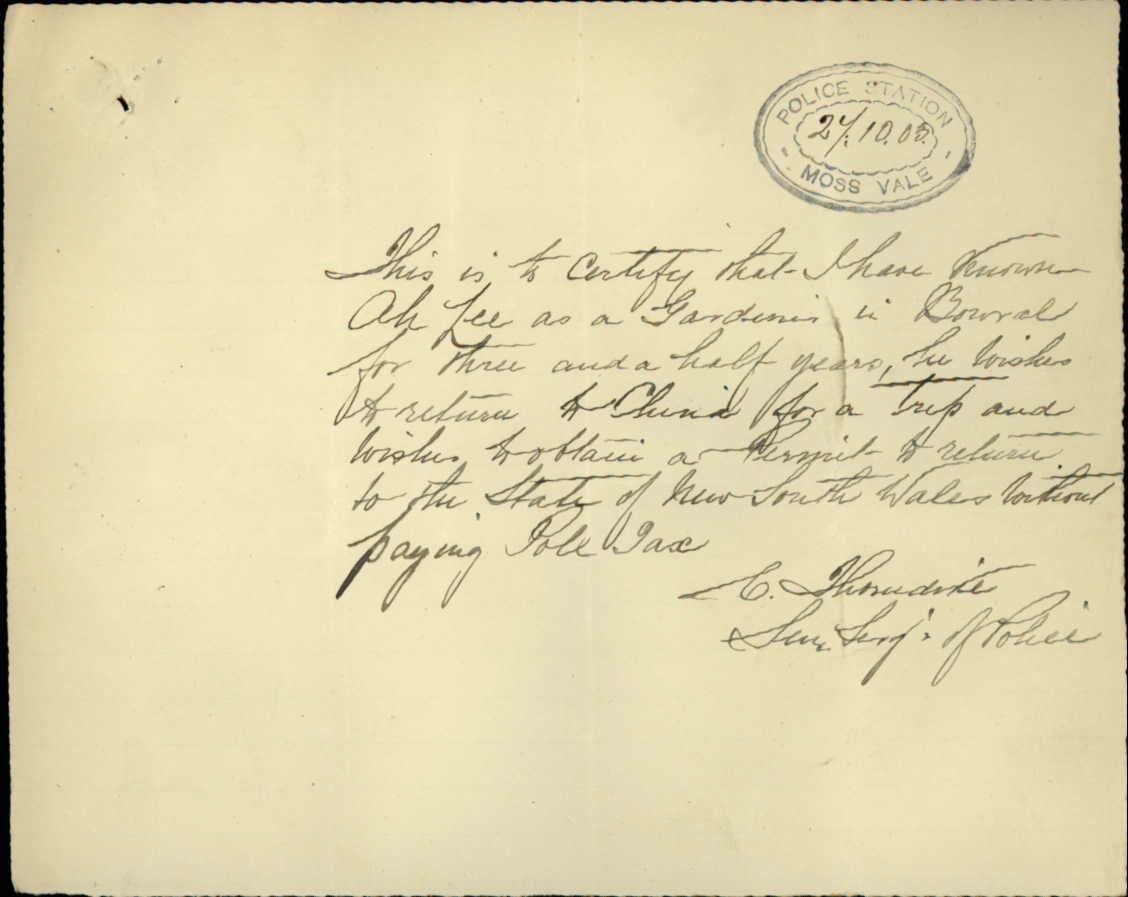 POLICE STATION
27.10.05.
- MOSS VALE -
This is to certify that I have known
Ah Lee as a Gardener in Bowral
for three and a half years, he wishes
to return to China for a trip and
wishes to obtain a Permit to return
to the State of New South Wales without
paying Pole Tax
C. Thorndike
Sen. Serj. of Police